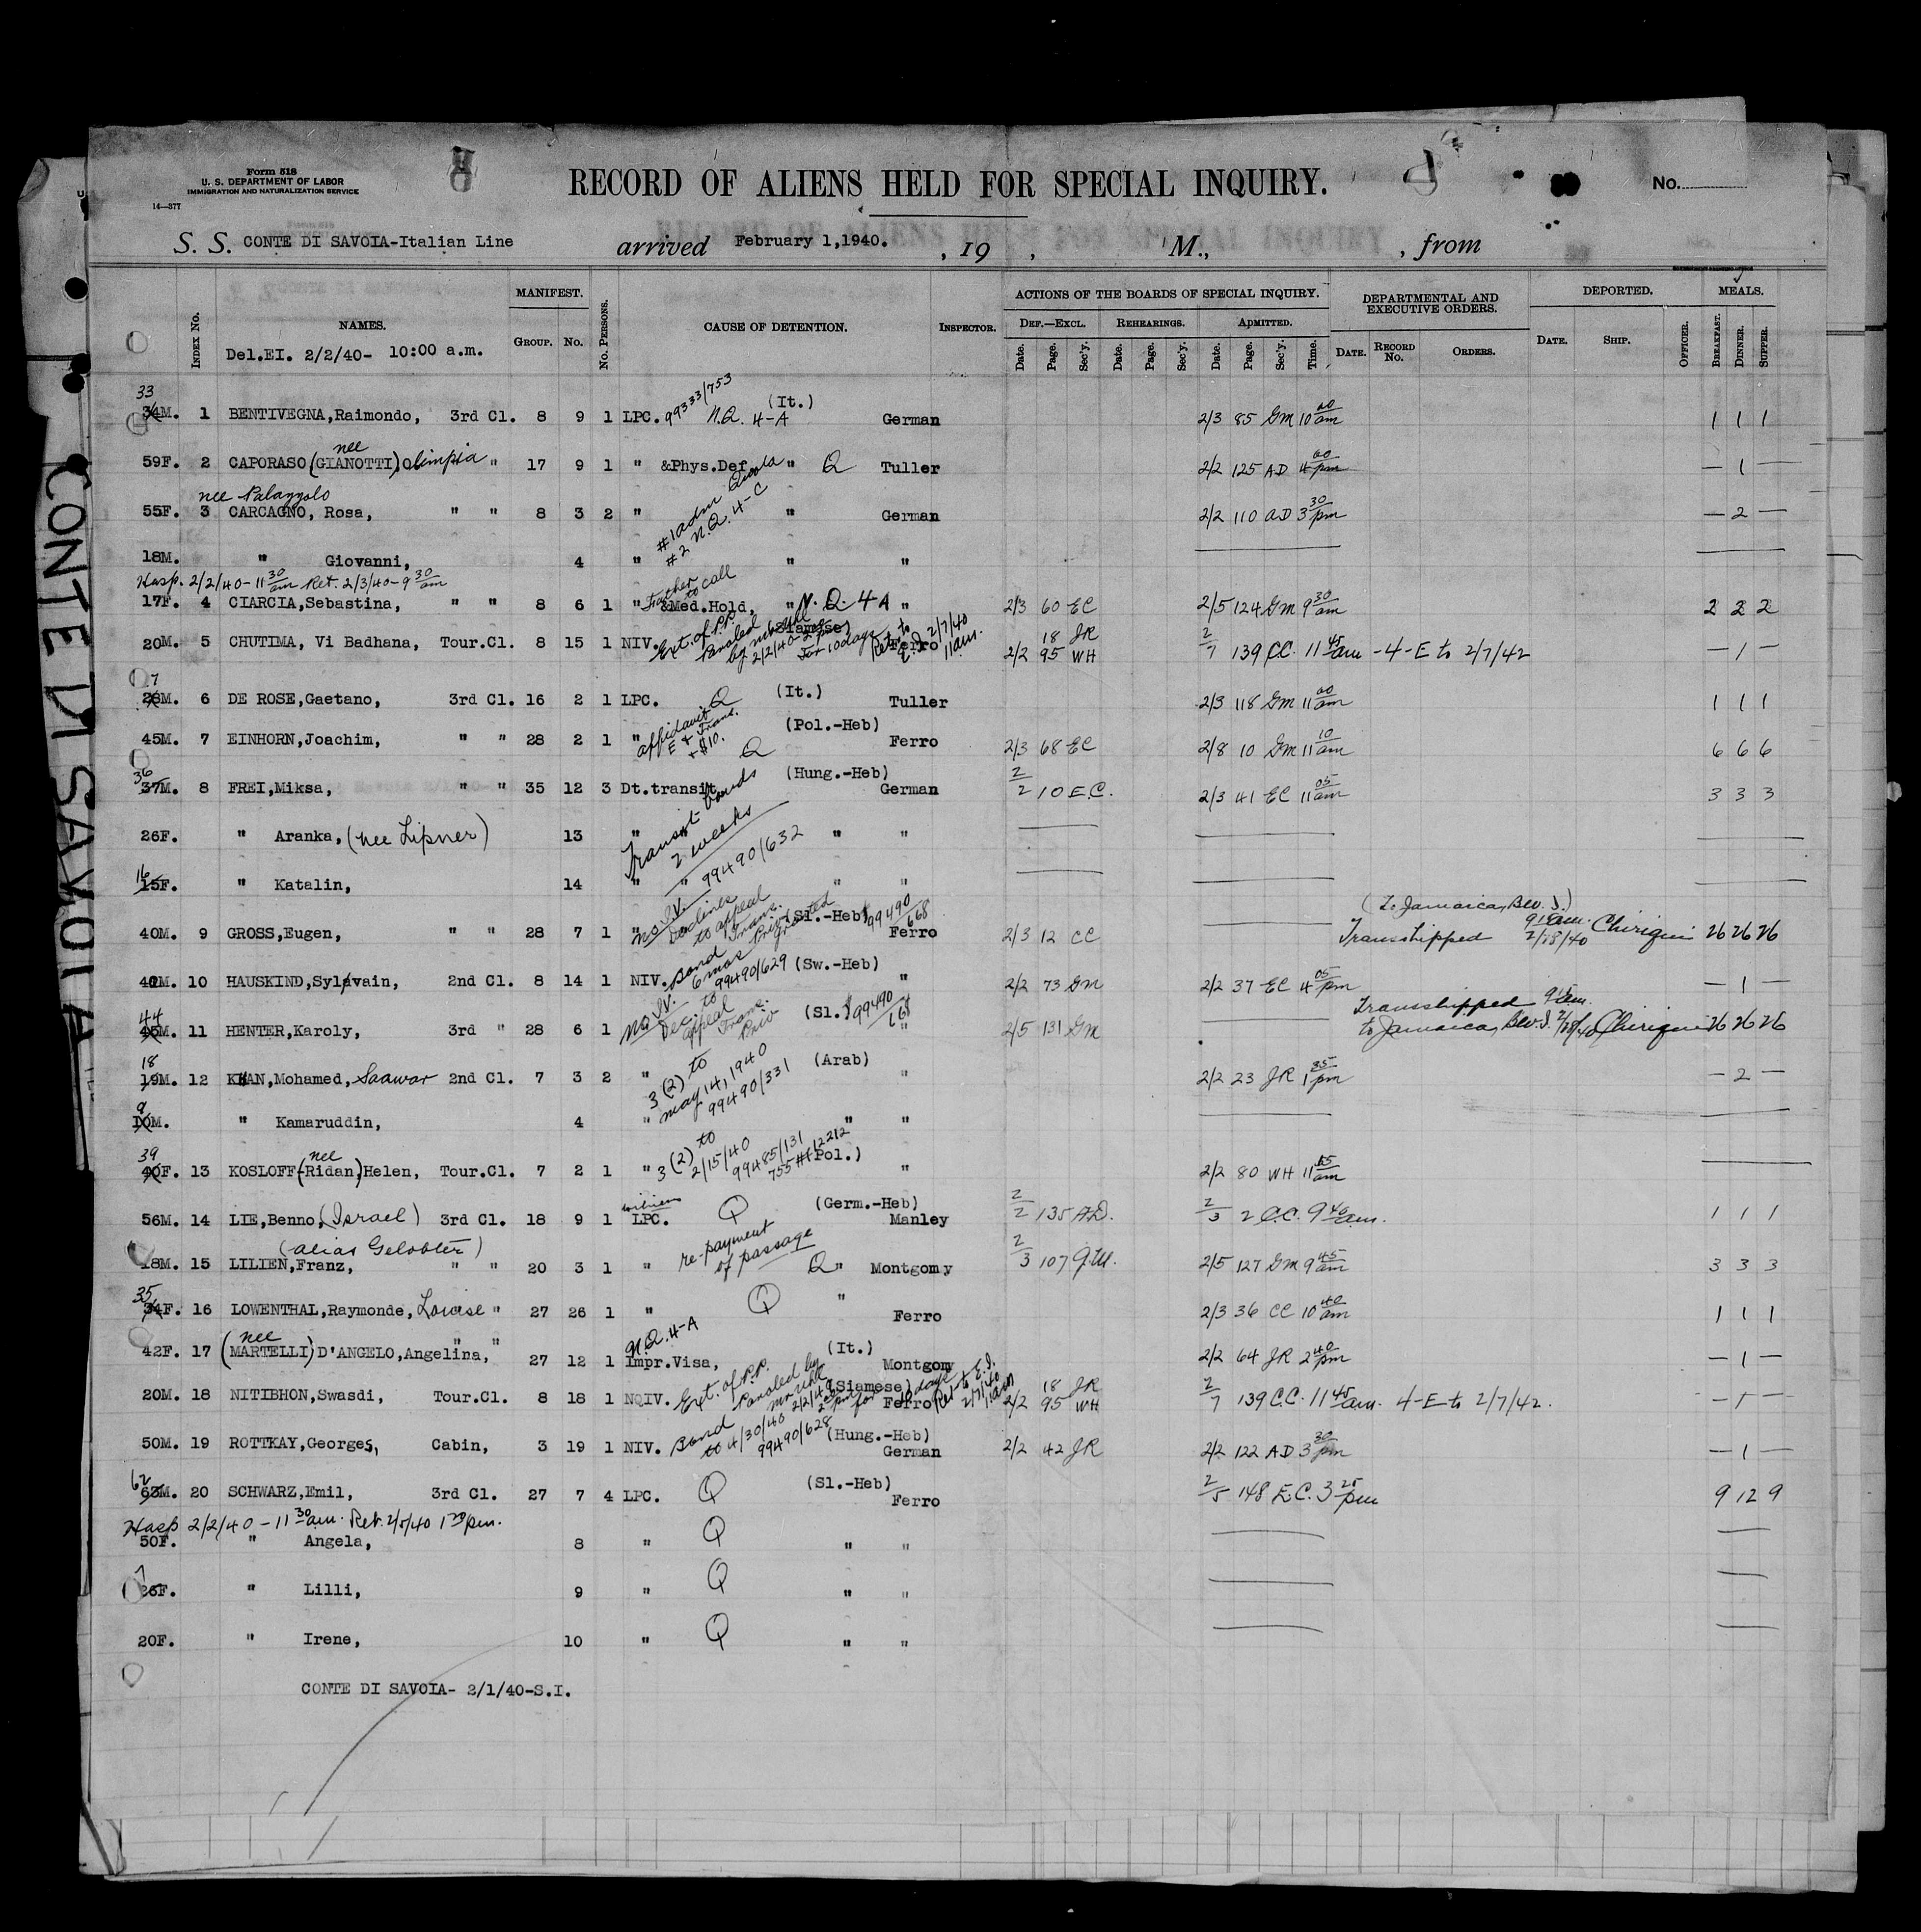 Form 518
U. S. DEPARTMENT OF LABOR
IMMIGRATION AND NATURALIZATION SERVICE
14—377
RECORD OF ALIENS HELD FOR SPECIAL INQUIRY.
No.
S. S. CONTE DI SAVOIA-Italian Line arrived February 1,1940. , 19 , M., , from
CONTE DI SAVOIA
INDEX No. NAMES. MANIFEST. GROUP. No. No. PERSONS. CAUSE OF DETENTION. INSPECTOR. ACTIONS OF THE BOARDS OF SPECIAL INQUIRY. DEPARTMENTAL AND EXECUTIVE ORDERS. DEPORTED. MEALS.
DEF.—EXCL. REHEARINGS. ADMITTED.
Date. Page. Sec'y. Date. Page. Sec'y. Date. Page. Sec'y. Time. DATE. RECORD No. ORDERS. DATE. SHIP. OFFICER. BREAKFAST. DINNER. SUPPER.
Del.EI. 2/2/40- 10:00 a.m.
33
34M. 1 BENTIVEGNA,Raimondo, 3rd Cl. 8 9 1 LPC. 99333/753 N.Q. 4-A (It.) German 2/3 85 GM 10 00 am 1 1 1
nee
59F. 2 CAPORASO(GIANOTTI)Olimpia " 17 9 1 " &Phys.Def. " Q Tuller 2/2 125 AD 4 00 pm — 1 —
nee Palazzolo
55F. 3 CARCAGNO, Rosa, " " 8 3 2 " #1 adm #2 N.Q. 4-C " German 2/2 110 AD 3 30 pm — 2 —
18M. " Giovanni, 4 " " "
Hosp. 2/2/40-11 30 am Ret. 2/3/40-9 30 am
17F. 4 CIARCIA,Sebastina, " " 8 6 1 " Father to call &Med.Hold, " N.Q. 4A " 2/3 60 EC 2/5 124 GM 9 30 am 2 2 2
20M. 5 CHUTIMA, Vi Badhana, Tour.Cl. 8 15 1 NIV. Ext. of P.P. Paroled by 2/2/40 for 10 days (Siamese) Ferro Ret. to E.I. 2/7/40 11am. 18 JR 2/2 95 WH 2/7 139 CC. 11 45 am - 4-E to 2/7/42 — 1 —
7
28M. 6 DE ROSE,Gaetano, 3rd Cl. 16 2 1 LPC. Q (It.) Tuller 2/3 118 GM 11 00 am 1 1 1
45M. 7 EINHORN,Joachim, " " 28 2 1 " affidavit E & Trans. + $10. Q (Pol.-Heb) Ferro 2/3 68 EC 2/8 10 GM 11 10 am 6 6 6
36
37M. 8 FREI,Miksa, " " 35 12 3 Dt.transit, (Hung.-Heb) German 2/2 10 E.C. 2/3 41 EC 11 05 am 3 3 3
26F. " Aranka,(nee Lipner) 13 " Transit bonds 2 weeks " "
16
15F. " Katalin, 14 " " 99490/632 " "
40M. 9 GROSS,Eugen, " " 28 7 1 " No I.V. Declines to appeal Trans. Priv. granted (Sl.-Heb) 99490/668 Ferro 2/3 12 CC (To Jamaica, B.W.I.) Transshipped 9 15 am. 2/28/40 Chiriqui 26 26 26
40M. 10 HAUSKIND,Sylvain, 2nd Cl. 8 14 1 NIV. Bond 6 mos 99490/629 (Sw.-Heb) " 2/2 73 GM 2/2 37 EC 4 05 pm — 1 —
44
45M. 11 HENTER,Karoly, 3rd " 28 6 1 " No I.V. Dec. to appeal Trans. Priv (Sl.) 99490/668 " 2/5 131 GM Transshipped 9 15 am. to Jamaica, B.W.I. 2/28/40 Chiriqui 26 26 26
18
19M. 12 KHAN,Mohamed, Saawar 2nd Cl. 7 3 2 " 3(2) to May 14, 1940 99490/331 (Arab) " 2/2 23 JR 1 35 pm — 2 —
9
10M. " Kamaruddin, 4 " " "
39 nee
40F. 13 KOSLOFF(Ridan)Helen, Tour.Cl. 7 2 1 " 3(2) to 2/15/40 99485/131 755#12212 (Pol.) " 2/2 80 WH 11 15 am
56M. 14 LIE,Benno,(Israel) 3rd Cl. 18 9 1 LPC. Q (Germ.-Heb) Manley 2/2 135 A.D. 2/3 2 C.C. 9 40 am. 1 1 1
(alias Gelobter)
18M. 15 LILIEN,Franz, " " 20 3 1 " re-payment of passage Q " Montgomy 2/3 107 G.M. 2/5 127 GM 9 45 am 3 3 3
35
34F. 16 LOWENTHAL,Raymonde, Louise " 27 26 1 " Q " Ferro 2/3 36 CC 10 40 am 1 1 1
nee
42F. 17 (MARTELLI)D'ANGELO,Angelina, " " 27 12 1 Impr.Visa, N.Q. 4-A (It.) Montgomy 2/2 64 JR 2 40 pm — 1 —
20M. 18 NITIBHON,Swasdi, Tour.Cl. 8 18 1 NQIV. Ext. of P.P. Paroled by 2/2/40 for 10 days (Siamese) Ferro Ret. to E.I. 2/7/40 11am 18 JR 2/2 95 WH 2/7 139 CC. 11 45 am. 4-E to 2/7/42. — 1 —
50M. 19 ROTTKAY,Georges, Cabin, 3 19 1 NIV. Bond to 4/30/40 99490/628 (Hung.-Heb) German 2/2 42 JR 2/2 122 AD 3 30 pm — 1 —
62
63M. 20 SCHWARZ,Emil, 3rd Cl. 27 7 4 LPC. Q (Sl.-Heb) Ferro 2/5 148 E.C. 3 25 pm 9 12 9
Hosp 2/2/40 - 11 30 am. Ret. 2/5/40 1 30 pm.
50F. " Angela, 8 " Q " "
26F. " Lilli, 9 " Q " "
20F. " Irene, 10 " Q " "
CONTE DI SAVOIA- 2/1/40-S.I.